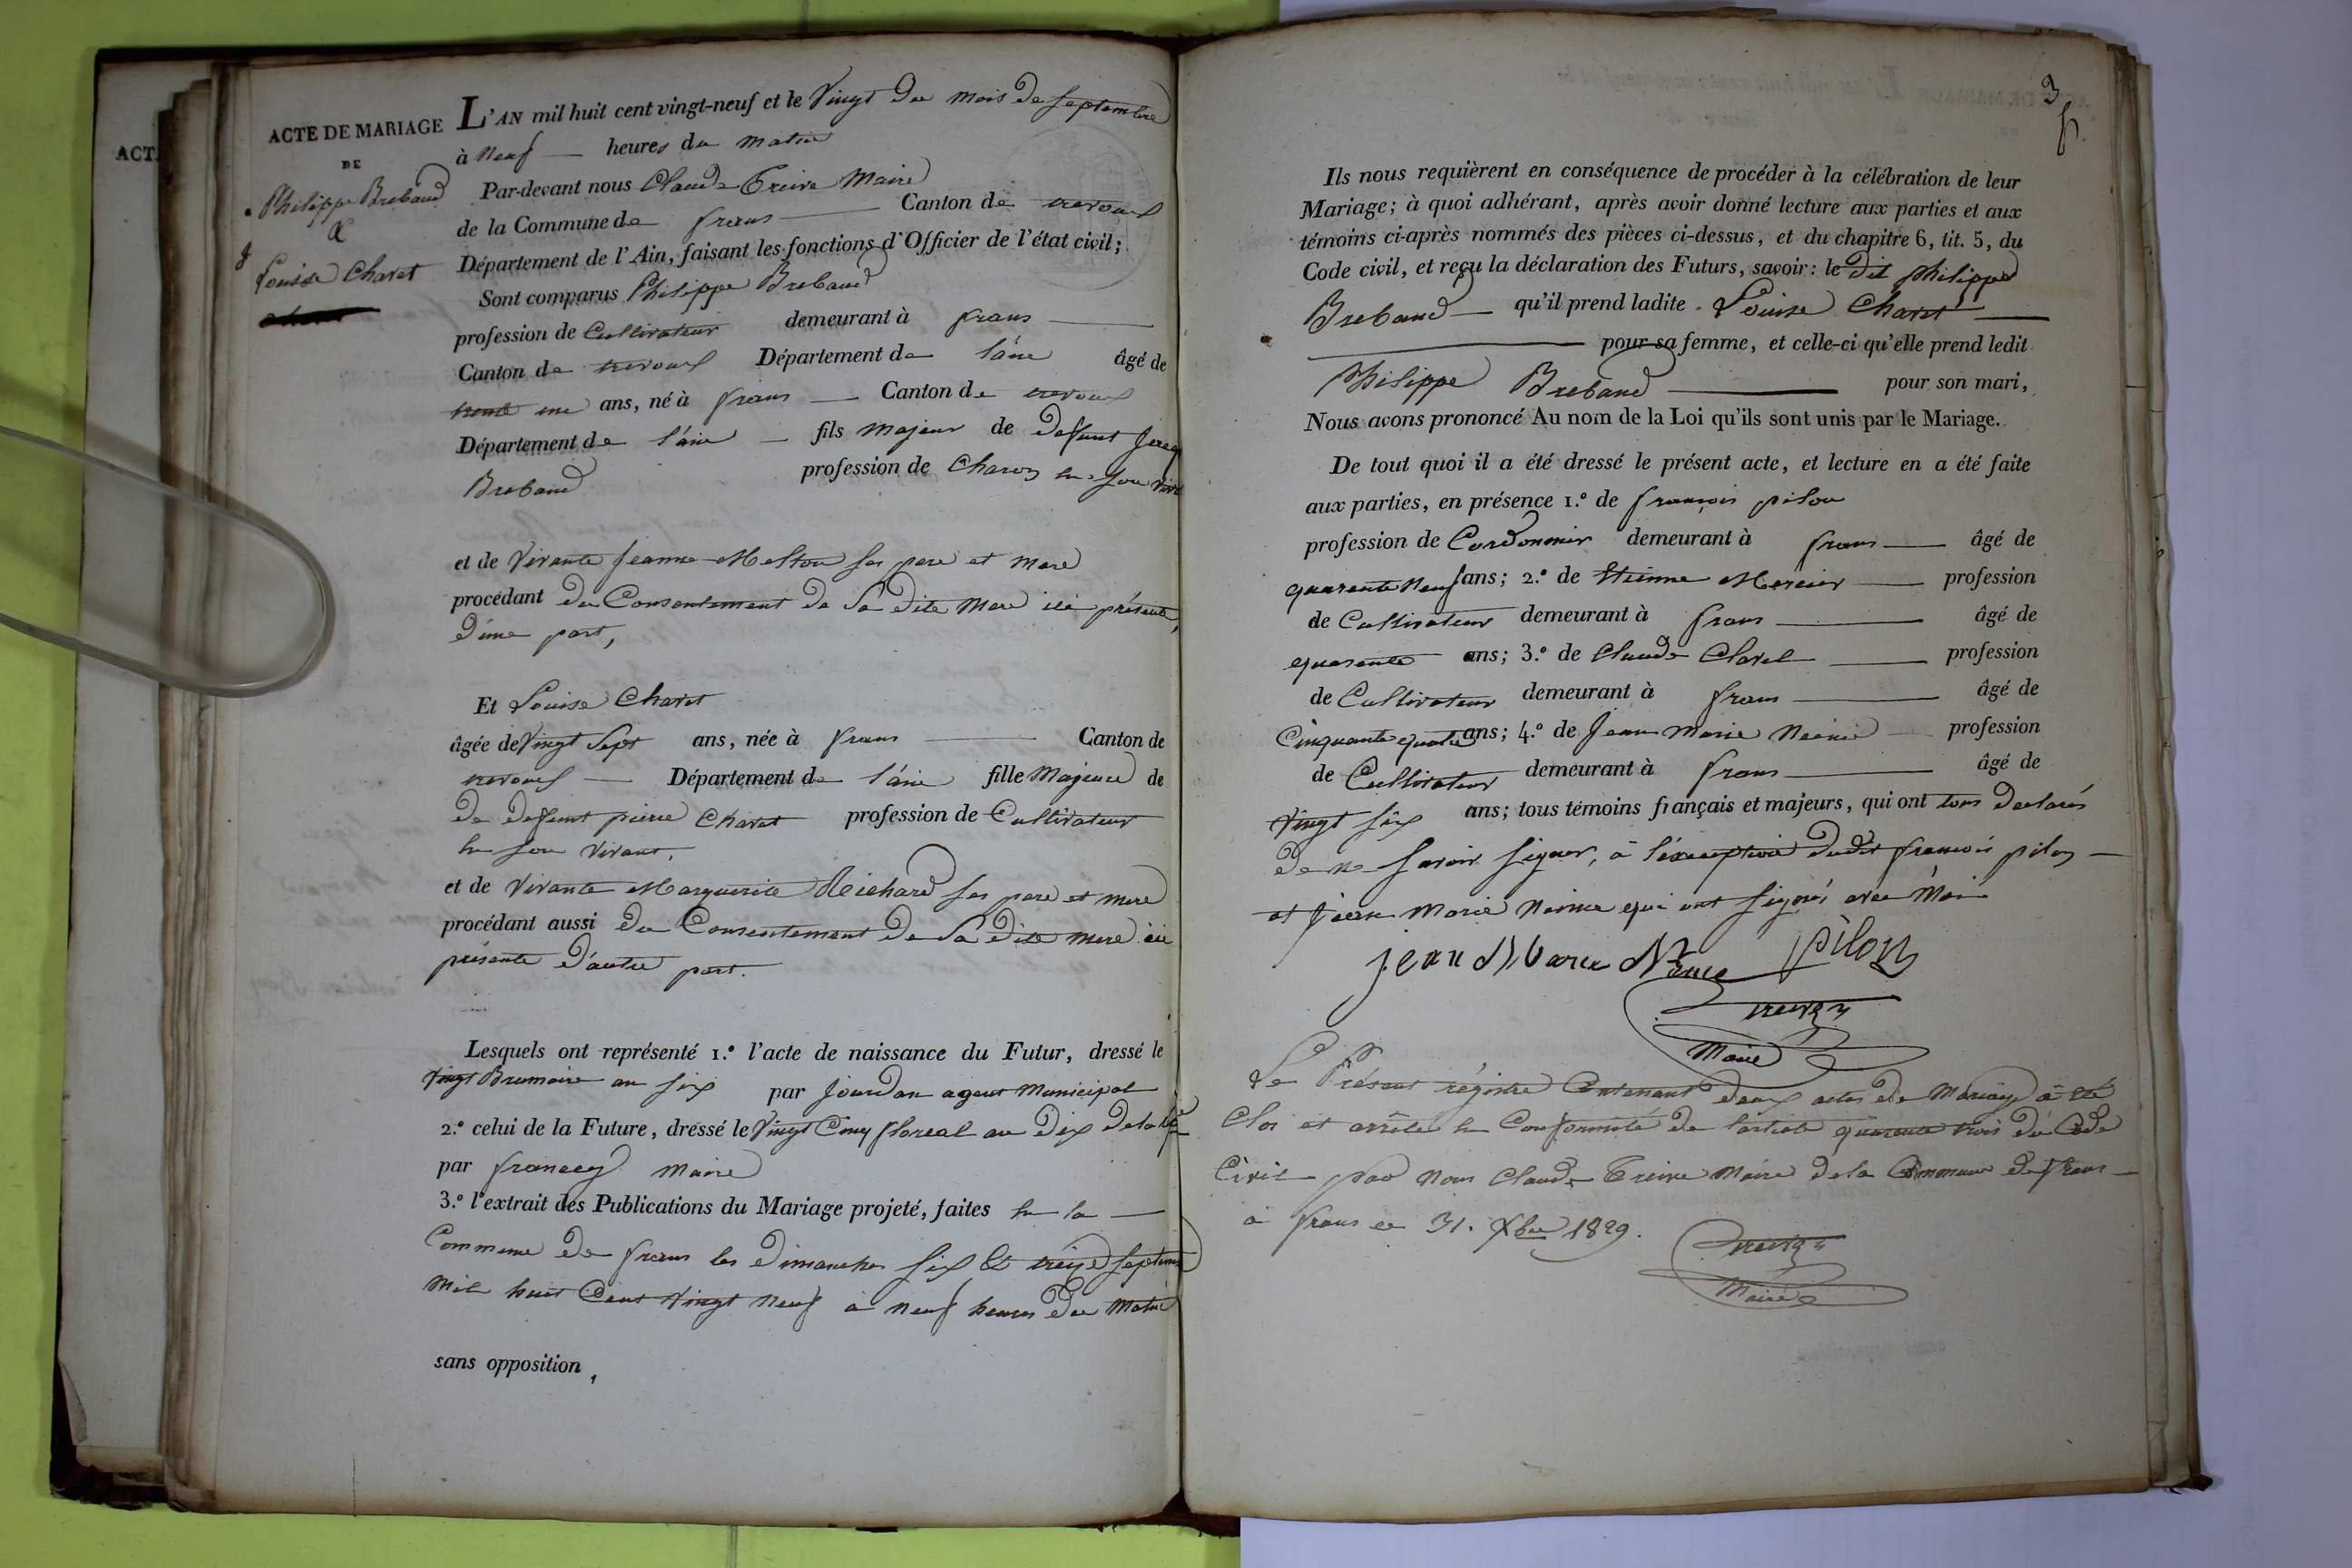 ACT
ACTE DE MARIAGE
DE
Philippe Brebaud
&
Louise Charet
L'AN mil huit cent vingt-neuf et le Vingt du mois de septembre
à Neuf heures du matin
Par-devant nous Claude Treive Maire
de la Commune de frans Canton de trevoux
Département de l'Ain, faisant les fonctions d'Officier de l'état civil;
Sont comparus Philippe Brebaud
profession de Cultivateur demeurant à frans
Canton de trevoux Département de l'ain âgé de
trente un ans, né à frans Canton de trevoux
Département de l'ain fils majeur de defunt Jacq
Brebaud profession de Charon en son viv
et de vivante Jeanne Melton ses pere et mere
procédant du Consentement de sa dite mere ici présente,
d'une part,
Et Louise Charet
âgée de Vingt sept ans, née à frans Canton de
trevoux Département de l'ain fille Majeure de
de defunt pierre Charet profession de Cultivateur
en son vivant,
et de vivante Marguerite Richard ses pere et mere
procédant aussi du Consentement de sa dite mere ici
présente d'autre part.
Lesquels ont représenté 1.º l'acte de naissance du Futur, dressé le
Vingt Brumaire an six par Jourdan agent Municipal
2.º celui de la Future, dressé le Vingt Cinq floreal an dix de la
par francey maire
3.º l'extrait des Publications du Mariage projeté, faites en la
Commune de frans les dimanches six & treize septem
mil huit Cent vingt neuf à neuf heures du matin
sans opposition,
3
Ils nous requièrent en conséquence de procéder à la célébration de leur
Mariage; à quoi adhérant, après avoir donné lecture aux parties et aux
témoins ci-après nommés des pièces ci-dessus, et du chapitre 6, tit. 5, du
Code civil, et reçu la déclaration des Futurs, savoir: le dit philippe
Brebaud qu'il prend ladite Louise Charet
pour sa femme, et celle-ci qu'elle prend ledit
Philippe Brebaud pour son mari,
Nous avons prononcé Au nom de la Loi qu'ils sont unis par le Mariage.
De tout quoi il a été dressé le présent acte, et lecture en a été faite
aux parties, en présence 1.º de françois pilon
profession de Cordonnier demeurant à frans âgé de
quarante neuf ans; 2.º de Etienne Mercier profession
de Cultivateur demeurant à frans âgé de
quarante ans; 3.º de Claude Clavel profession
de Cultivateur demeurant à frans âgé de
Cinquante quatre ans; 4.º de Jean Marie profession
de Cultivateur demeurant à frans âgé de
vingt six ans; tous témoins français et majeurs, qui ont tous declarés
de ne savoir signer, à l'exception dudit francois pilon
et Jean Marie qui ont signés avec Moi
jean Marie pilon
treive
Maire
Le Présent régistre Contenant deux actes de Mariage à été
Clos et arrêté en Conformité de l'article quarante trois du Code
Civil par nous Claude Treive Maire de la Commune de frans
à frans ce 31. Xbre 1829.
treive
Maire